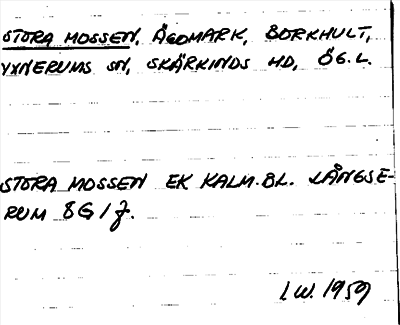 STORA MOSSEN, ÄGOMARK, BORKHULT,
YXNERUMS SN, SKÄRKINDS HD, ÖG.L.
STORA MOSSEN EK KALM.BL. LÅNGSE-
RUM 8G1f.
I.W. 1959